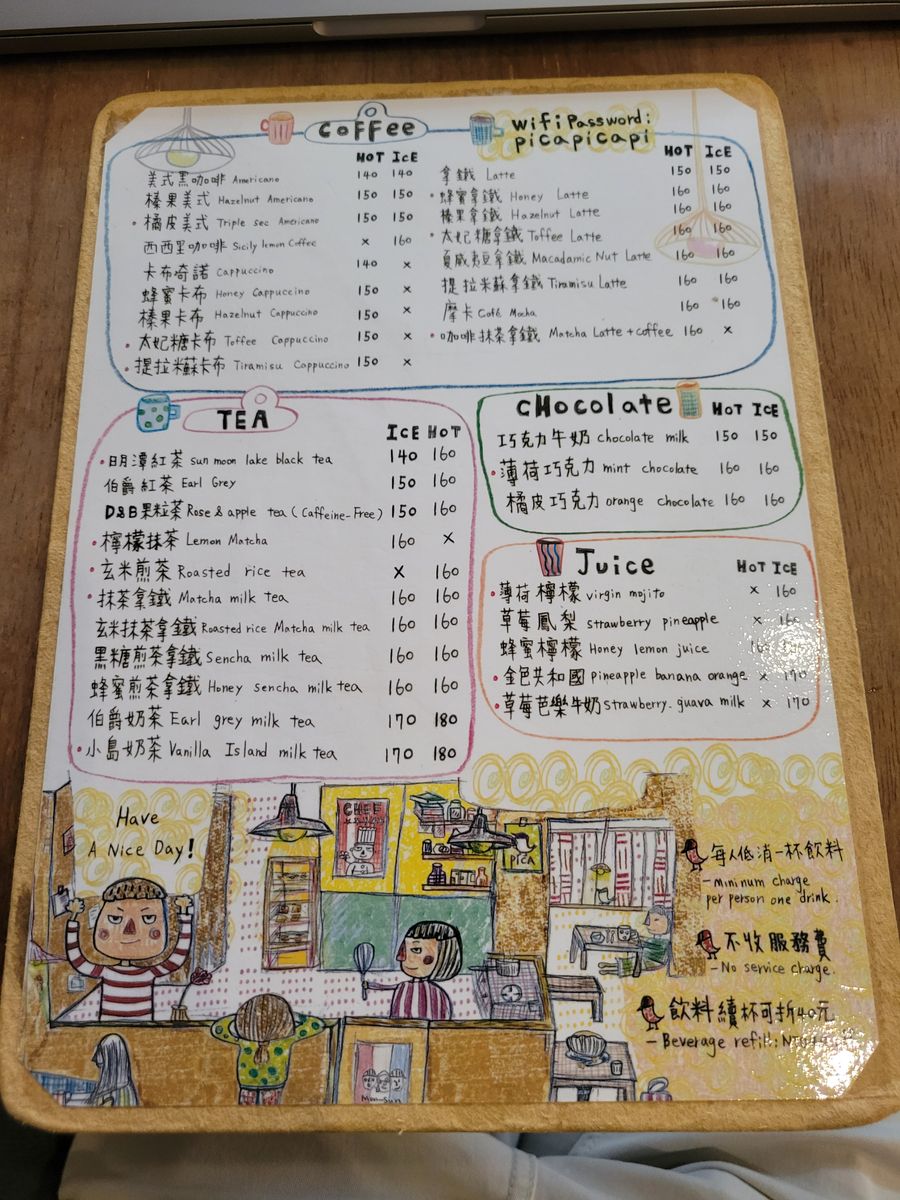 Coffee
wifi Password:
picapicapi
HOT ICE
美式黑咖啡 Americano 140 140
榛果美式 Hazelnut Americano 150 150
• 橘皮美式 Triple sec Americano 150 150
西西里咖啡 Sicily lemon Coffee x 160
卡布奇諾 Cappuccino 140 x
蜂蜜卡布 Honey Cappuccino 150 x
榛果卡布 Hazelnut Cappuccino 150 x
• 太妃糖卡布 Toffee Cappuccino 150 x
• 提拉米蘇卡布 Tiramisu Cappuccino 150 x
HOT ICE
拿鐵 Latte 150 150
• 蜂蜜拿鐵 Honey Latte 160 160
榛果拿鐵 Hazelnut Latte 160 160
• 太妃糖拿鐵 Toffee Latte 160 160
夏威夷豆拿鐵 Macadamic Nut Latte 160 160
提拉米蘇拿鐵 Tiramisu Latte 160 160
摩卡 Café Mocha 160 160
• 咖啡抹茶拿鐵 Matcha Latte + coffee 160 x
TEA
ICE HOT
• 日月潭紅茶 Sun moon lake black tea 140 160
伯爵紅茶 Earl Grey 150 160
D&B果粒茶 Rose & apple tea (Caffeine-Free) 150 160
• 檸檬抹茶 Lemon Matcha 160 x
• 玄米煎茶 Roasted rice tea x 160
• 抹茶拿鐵 Matcha milk tea 160 160
玄米抹茶拿鐵 Roasted rice Matcha milk tea 160 160
黑糖煎茶拿鐵 Sencha milk tea 160 160
蜂蜜煎茶拿鐵 Honey sencha milk tea 160 160
伯爵奶茶 Earl grey milk tea 170 180
• 小島奶茶 Vanilla Island milk tea 170 180
CHocolate
HOT ICE
巧克力牛奶 chocolate milk 150 150
• 薄荷巧克力 mint chocolate 160 160
橘皮巧克力 orange chocolate 160 160
Juice
HOT ICE
• 薄荷檸檬 virgin mojito x 160
草莓鳳梨 strawberry pineapple x
蜂蜜檸檬 Honey lemon juice
• 金色共和國 pineapple banana orange x 170
• 草莓芭樂牛奶 strawberry. guava milk x 170
Have
A Nice Day!
CHEE
PICA
每人低消一杯飲料
- mininum charge
per person one drink.
不收服務費
- No service charge.
飲料續杯可折40元
- Beverage refill:
Mon-Sun